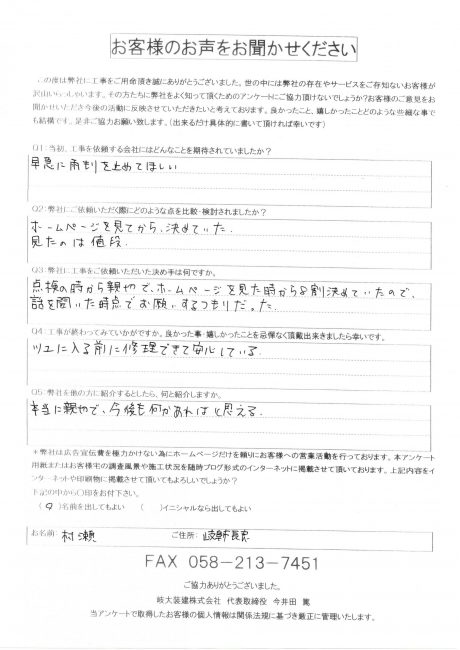 お客様のお声をお聞かせください
この度は弊社に工事をご用命頂き誠にありがとうございました。世の中には弊社の存在やサービスをご存知ないお客様が
沢山いらっしゃいます。その方たちに弊社をよく知って頂くためのアンケートにご協力頂けないでしょうか？お客様のご意見をお
聞かせいただき今後の活動に反映させていただきたいと考えております。良かったこと、嬉しかったことどのような些細な事で
も結構です。是非ご協力お願い致します。（出来るだけ具体的に書いて頂ければ幸いです）
Q1：当初、工事を依頼する会社にはどんなことを期待されていましたか？
早急に雨劧りを止めてほしい
Q2：弊社にご依頼いただく際にどのような点を比較・検討されましたか？
ホームページを見てから、決めていた.
見たのは値段.
Q3：弊社に工事をご依頼いただいた決め手は何ですか。
点検の時から親切で、ホームページを見た時から8割決めていたので、
話を聞いた時点でお願いするつもりだった.
Q4：工事が終わってみていかがですか。良かった事・嬉しかったことを忌憚なく頂戴出来きましたら幸いです。
ツユに入る前に修理できて安心している.
Q5：弊社を他の方に紹介するとしたら、何と紹介しますか。
本当に親切で、今後も何かあればと思える.
＊弊社は広告宣伝費を極力かけない為にホームページだけを頼りにお客様への営業活動を行っております。本アンケート
用紙またはお客様宅の調査風景や施工状況を随時ブログ形式のインターネットに掲載させて頂いております。上記内容をイ
ンターネットや印刷物に掲載させて頂いてもよろしいでしょうか？
下記の中から〇印をお付下さい。
（○）名前を出してもよい　（　）イニシャルなら出してもよい
お名前： 村瀬　ご住所： 岐阜市長良
FAX 058-213-7451
ご協力ありがとうございました。
岐大装建株式会社　代表取締役　今井田　篤
当アンケートで取得したお客様の個人情報は関係法規に基づき厳正に管理いたします。